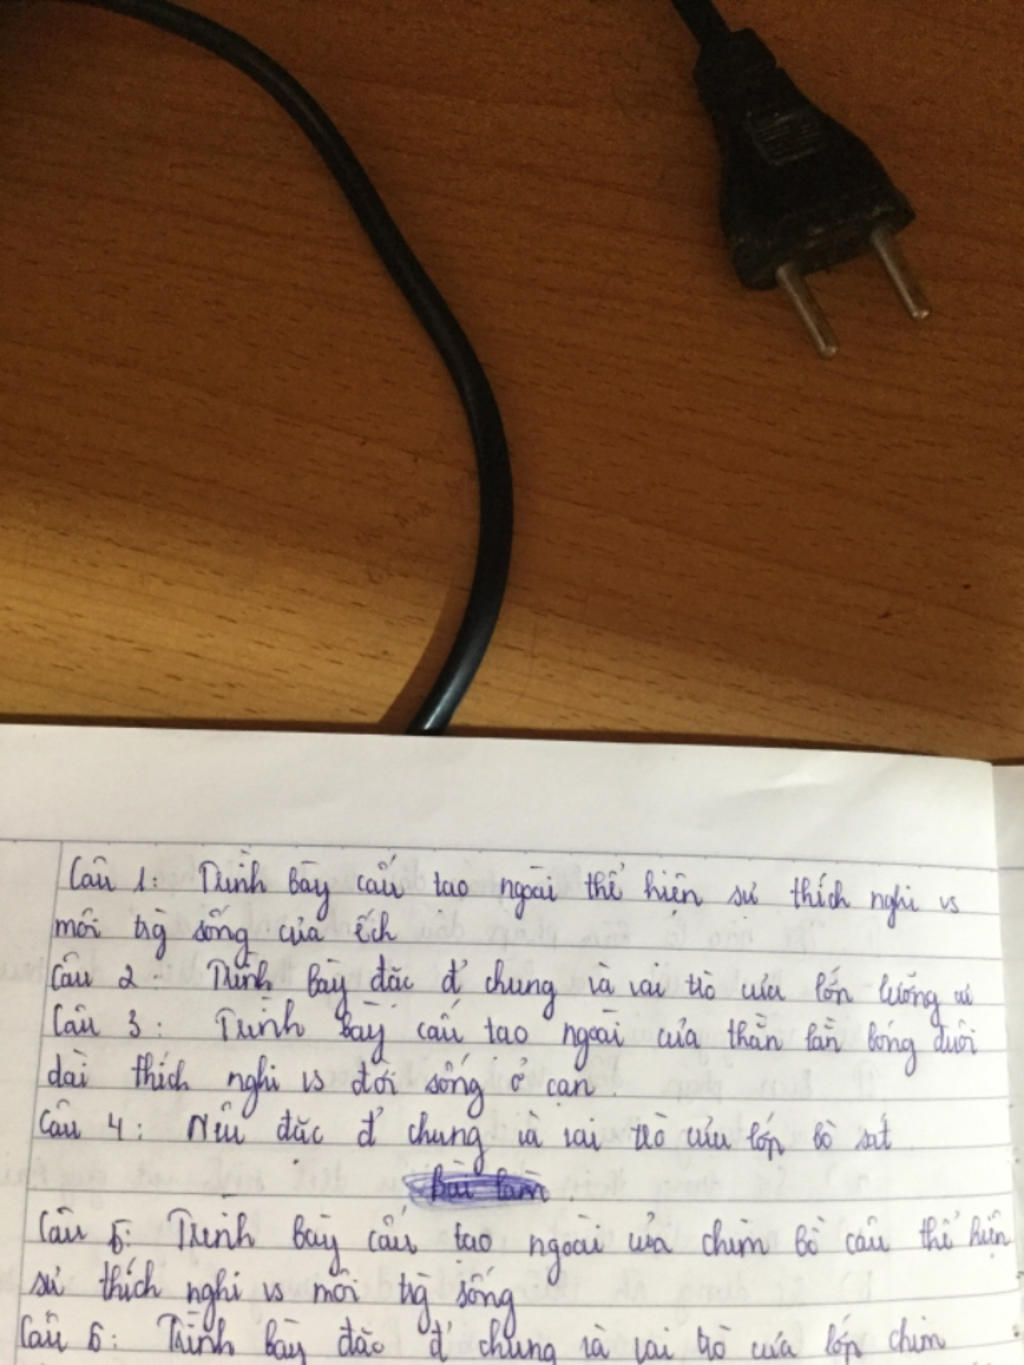 Câu 1: Trình bày cấu tạo ngoài thể hiện sự thích nghi vs
môi trg sống của ếch
Câu 2: Trình bày đặc đ' chung và vai trò của lớp lưỡng cư
Câu 3: Trình bày cấu tạo ngoài của thằn lằn bóng đuôi
dài thích nghi vs đời sống ở cạn.
Câu 4: Nêu đặc đ' chung và vai trò của lớp bò sát
Bài làm
Câu 5: Trình bày cấu tạo ngoài của chim bồ câu thể hiện
sự thích nghi vs môi trg sống
Câu 6: Trình bày đặc đ' chung và vai trò của lớp chim